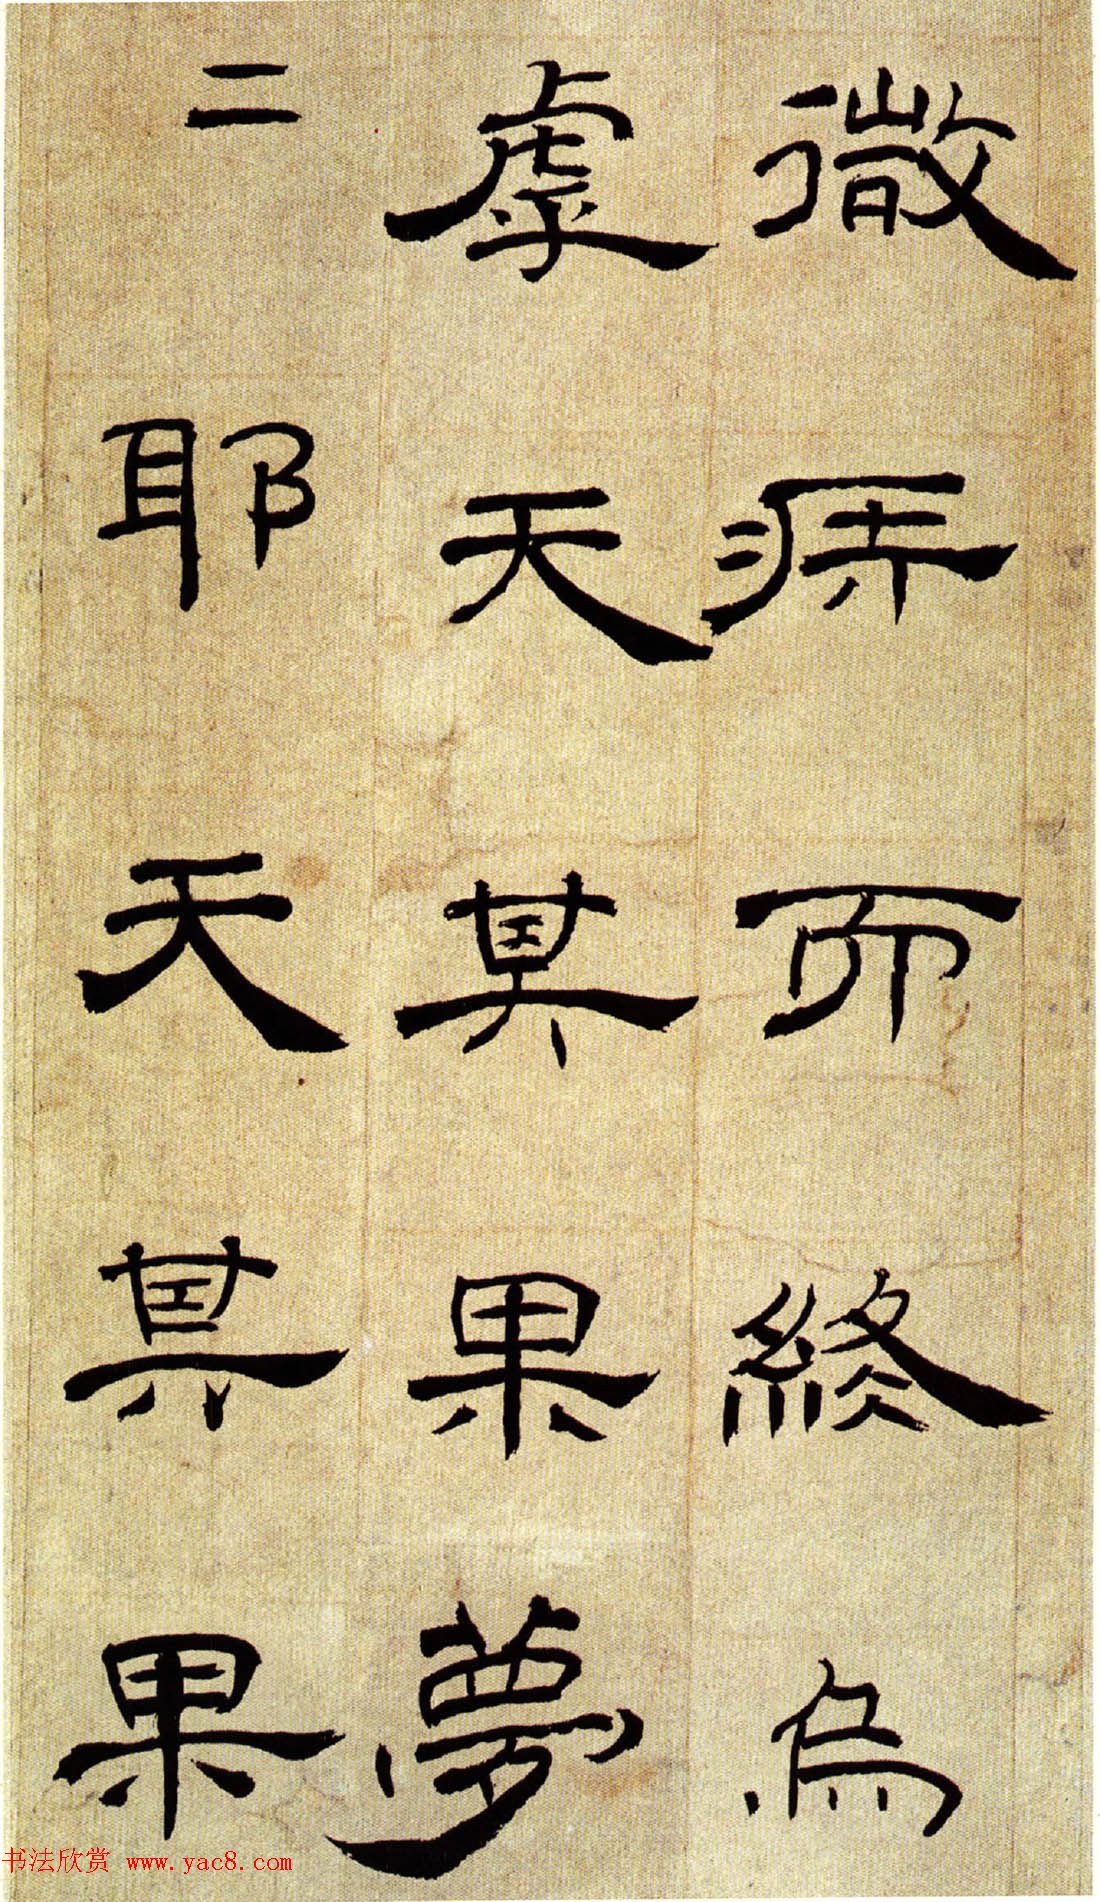 微而終烏
虖天其果夢
二耶天其果
书法欣赏 www.yac8.com